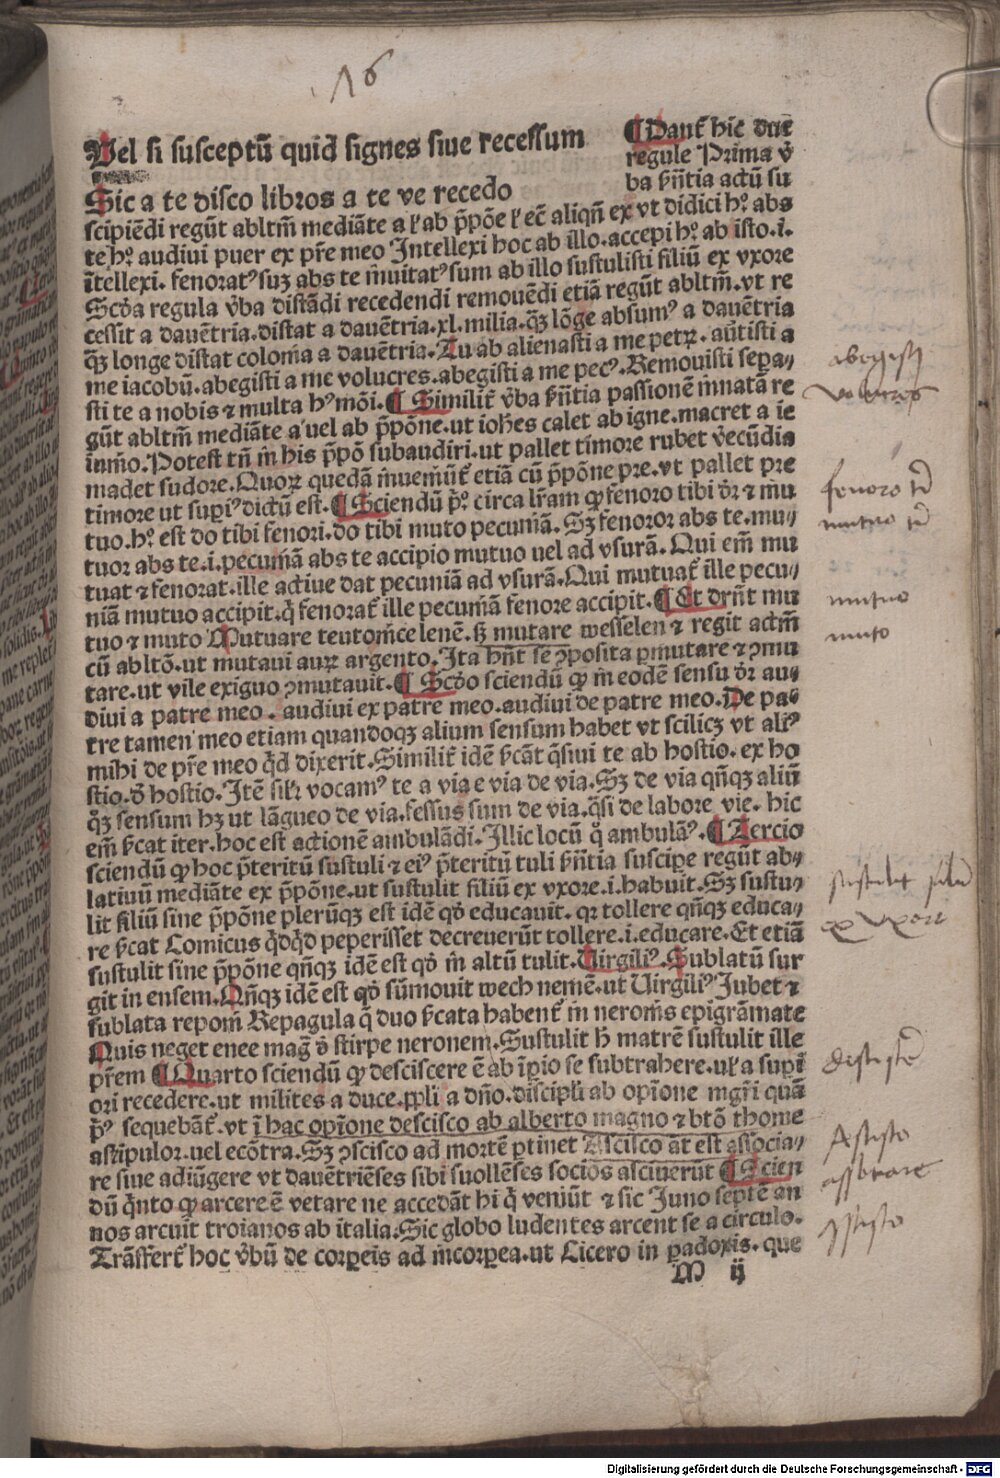 16
Vel si susceptũ quid signes siue recessum
Sic a te disco libros a te ve recedo
¶ Dant̃ hic due
regule Prima v̾
ba ſñtia actũ su
scipiẽdi regũt abltm̃ mediãte a ł ab p̃põe ł ec̃ aliqñ ex vt didici hꝰ abs
te hꝰ audiui puer ex pr̃e meo Intellexi hoc ab illo. accepi hꝰ ab isto. i.
ĩtellexi. fenoratꝰ suꝫ abs te m̃uitatꝰ sum ab illo sustulisti filiũ ex vxore
Scd̾a regula v̾ba distãdi recedendi remouẽdi etiã regũt abltm̃. vt re
cessit a dauẽtria. distat a dauẽtria. xl. milia. qꝫ lõge absumꝰ a dauẽtria
qꝫ longe distat colonia a dauẽtria. Tu ab alienasti a me petrꝝ. aũtisti a
me iacobũ. abegisti a me volucres. abegisti a me pecꝰ. Remouisti sepa⸗
sti te a nobis ⁊ multa hꝰmõi. ¶ Similit̃ v̾ba ſñtia passionẽ ĩnatã re
gũt abltm̃ mediãte a uel ab p̃põne. ut ioh̃es calet ab igne. macret a ie
iunio. Potest tñ in his p̃põ subaudiri. ut pallet timore rubet v̾ecũdia
madet sudore. Quoꝝ quedã inueniũt̃ etiã cũ p̃põne pre. vt pallet pre
timore ut supiꝰ dictũ est. ¶ Sciendũ pꝰ. circa lr̃am ꝙ fenoro tibi d̾r ⁊ mu
tuo. hꝰ. est do tibi fenori. do tibi muto pecuniã. Sꝫ fenoror abs te. mu⸗
tuor abs te. i. pecuniã abs te accipio mutuo uel ad vsurã. Qui em̃ mu
tuat ⁊ fenorat. ille actiue dat pecuniã ad vsurã. Qui mutuat̃ ille pecu⸗
niã mutuo accipit. q̃ fenorat̃ ille pecuniã fenore accipit. ¶ Et drñt mu
tuo ⁊ muto Mutuare teutonice lenẽ. sꝫ mutare wesselen ⁊ regit actm̃
cũ abltõ. ut mutaui auꝝ argento. Ita hñt se ꝯposita ꝑmutare ⁊ ꝯmu
tare. ut vile exiguo ꝯmutauit. ¶ Scd̾o sciendũ ꝙ in eodẽ sensu d̾r au⸗
diui a patre meo. audiui ex patre meo. audiui de patre meo. De pa⸗
tre tamen meo etiam quandoqꝫ alium sensum habet vt scilicꝫ vt aliꝰ
mihi de pr̃e meo q̃d dixerit. Similit̃ idẽ ſcãt q̃siui te ab hostio. ex ho
stio. d̾ hostio. Itẽ silr̃ vocamꝰ te a via e via de via. Sꝫ de via qñqꝫ aliũ
qꝫ sensum hꝫ ut lãgueo de via. fessus sum de via. q̃si de labore vie. hic
em̃ ſcat iter. hoc est actionẽ ambulãdi. Illic locũ q̃ ambulãꝰ. ¶ Tercio
sciendũ ꝙ hoc p̃teritũ sustuli ⁊ eiꝰ p̃teritũ tuli ſñtia suscipe regũt ab⸗
latiuũ mediãte ex p̃põne. ut sustulit filiũ ex vxore. i. habuit. Sꝫ sustu⸗
lit filiũ sine p̃põne plerũqꝫ est idẽ qd̾ educauit. qꝛ tollere qñqꝫ educa⸗
re ſcat Comicus q̃dq̃d peperisset decreuerũt tollere. i. educare. Et etiã
sustulit sine p̃põne qñqꝫ idẽ est qd̾ in altũ tulit. Virgiliꝰ. Sublatũ sur
git in ensem. Qñqꝫ idẽ est qd̾ sũmouit wech nemẽ. ut Uirgiliꝰ Jubet ⁊
sublata reponi Repagula q̃ duo ſcata habent̃ in neronis epigrãmate
Quis neget enee mag̃ d̾ stirpe neronem. Sustulit h̃ matrẽ sustulit ille
pr̃em ¶ Quarto sciendũ ꝙ desciscere ẽ ab ĩpio se subtrahere. uł a supi
ori recedere. ut milites a duce. ppli a dño. discipli ab opĩone mgr̃i quã
pꝰ sequebãt̃. vt ĩ hac opĩone descisco ab alberto magno ⁊ btõ thome
astipulor. uel ecõtra. Sꝫ ꝯscisco ad mortẽ ꝑtinet Ascisco ãt est associa⸗
re siue adiũgere vt dauẽtriẽses sibi suollẽses socios asciuerũt ¶ Scien
dũ q̃nto ꝙ arcere ẽ vetare ne accedãt hi q̃ veniũt ⁊ sic Juno septẽ an
nos arcuit troianos ab italia. Sic globo ludentes arcent se a circulo.
Trãsfert̃ hoc v̾bũ de corꝑeis ad incorꝑea. ut Cicero in ꝑadoxis. que
M ij
abegisti
volucres
fenoro te
mutuo te
mutuo
muto
sustulit filiũ
ex vxore
Digitalisierung gefördert durch die Deutsche Forschungsgemeinschaft - DFG